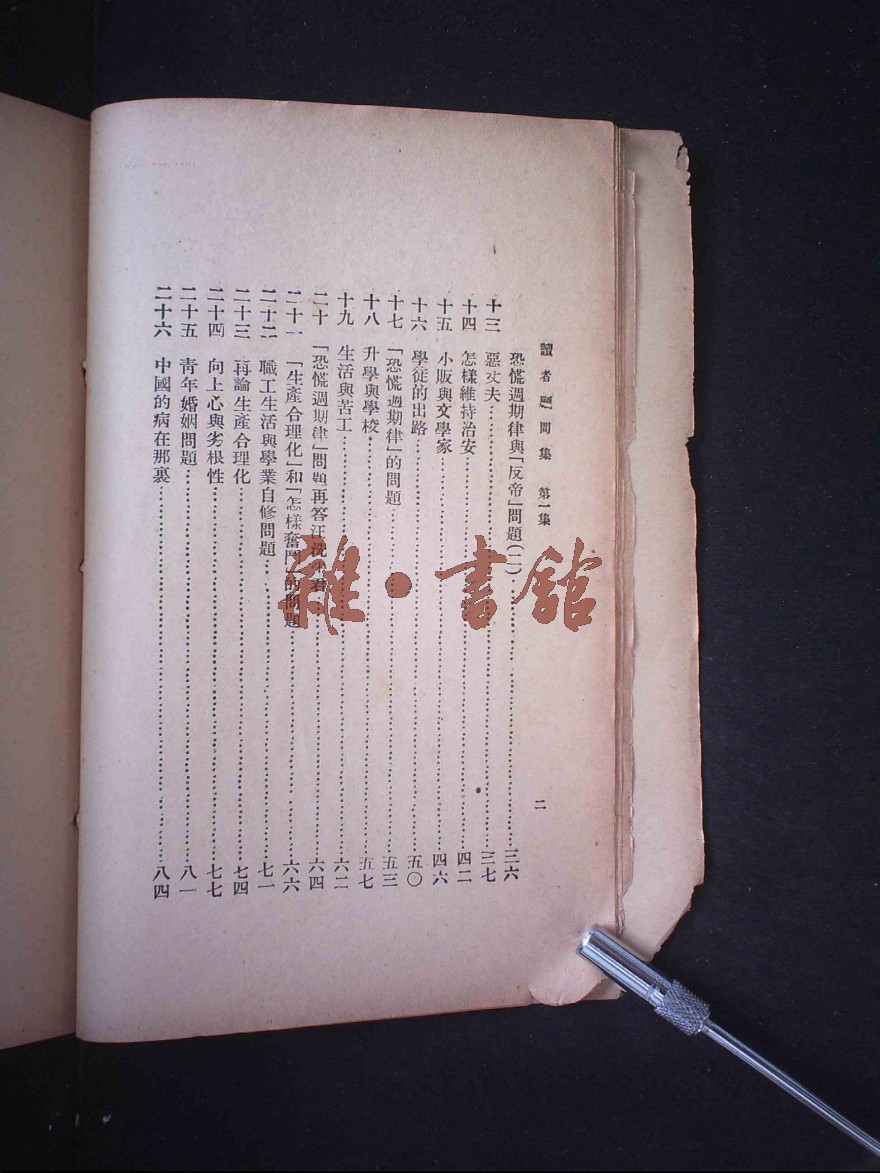 讀者顧問集　第一集　二
恐慌週期律與「反帝」問題(二)……三六
十三　惡丈夫……三七
十四　怎樣維持治安……四二
十五　小販與文學家……四六
十六　學徒的出路……五〇
十七　「恐慌週期律」的問題……五三
十八　升學與學校……五七
十九　生活與苦工……六二
二十　「恐慌週期律」問題再答汪君……六四
二十一　「生產合理化」和「怎樣奮鬥」的問題……六六
二十二　職工生活與學業自修問題……七一
二十三　再論生產合理化……七四
二十四　向上心與劣根性……七七
二十五　青年婚姻問題……八一
二十六　中國的病在那裏……八四
雜·書館